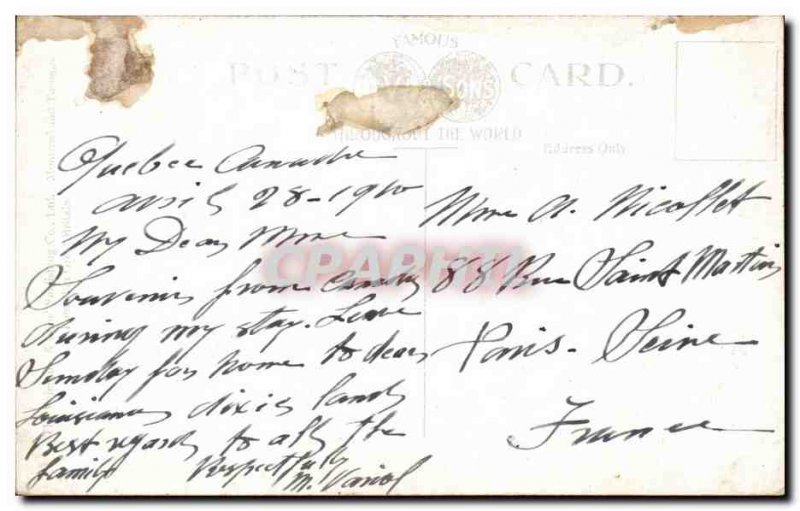 FAMOUS
POST CARD.
SONS
THROUGHOUT THE WORLD
Address Only
Quebec Canada
April 28-1910
My Dear Mme
Souvenir from Canada
during my stay. Leave
Sunday for home to dear
Louisiana dixie land
Best regards to all the
family Respectfully
M.
Mme A. Nicollet
88 Rue Saint Martin
Paris - Seine
France
CPAPHIL
Montreal and Toronto